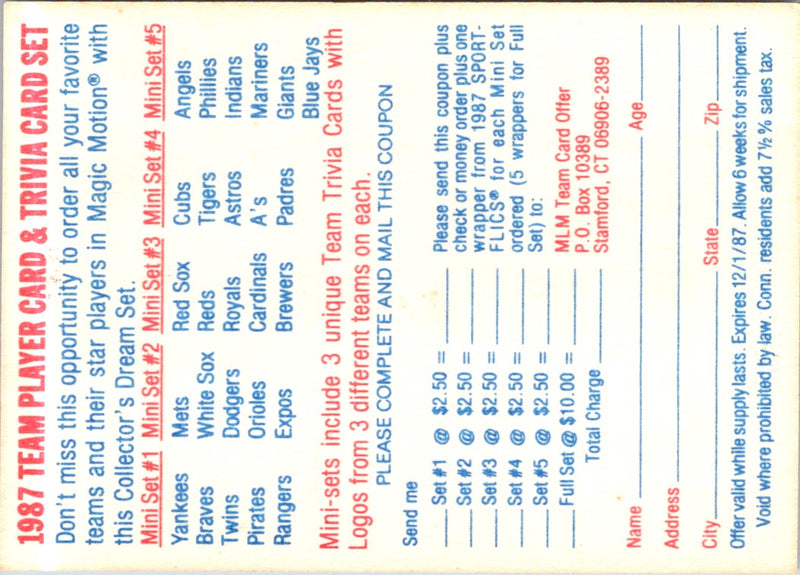 1987 TEAM PLAYER CARD & TRIVIA CARD SET
Don't miss this opportunity to order all your favorite
teams and their star players in Magic Motion® with
this Collector's Dream Set.
Mini Set #1 Mini Set #2 Mini Set #3 Mini Set #4 Mini Set #5
Yankees Mets Red Sox Cubs Angels
Braves White Sox Reds Tigers Phillies
Twins Dodgers Royals Astros Indians
Pirates Orioles Cardinals A's Mariners
Rangers Expos Brewers Padres Giants
Blue Jays
Mini-sets include 3 unique Team Trivia Cards with
Logos from 3 different teams on each.
PLEASE COMPLETE AND MAIL THIS COUPON
Send me
Set #1 @ $2.50 =
Set #2 @ $2.50 =
Set #3 @ $2.50 =
Set #4 @ $2.50 =
Set #5 @ $2.50 =
Full Set @ $10.00 =
Total Charge
Please send this coupon plus
check or money order plus one
wrapper from 1987 SPORT-
FLICS® for each Mini Set
ordered (5 wrappers for Full
Set) to:
MLM Team Card Offer
P.O. Box 10389
Stamford, CT 06906-2389
Name Age
Address
City State Zip
Offer valid while supply lasts. Expires 12/1/87. Allow 6 weeks for shipment.
Void where prohibited by law. Conn. residents add 7½% sales tax.